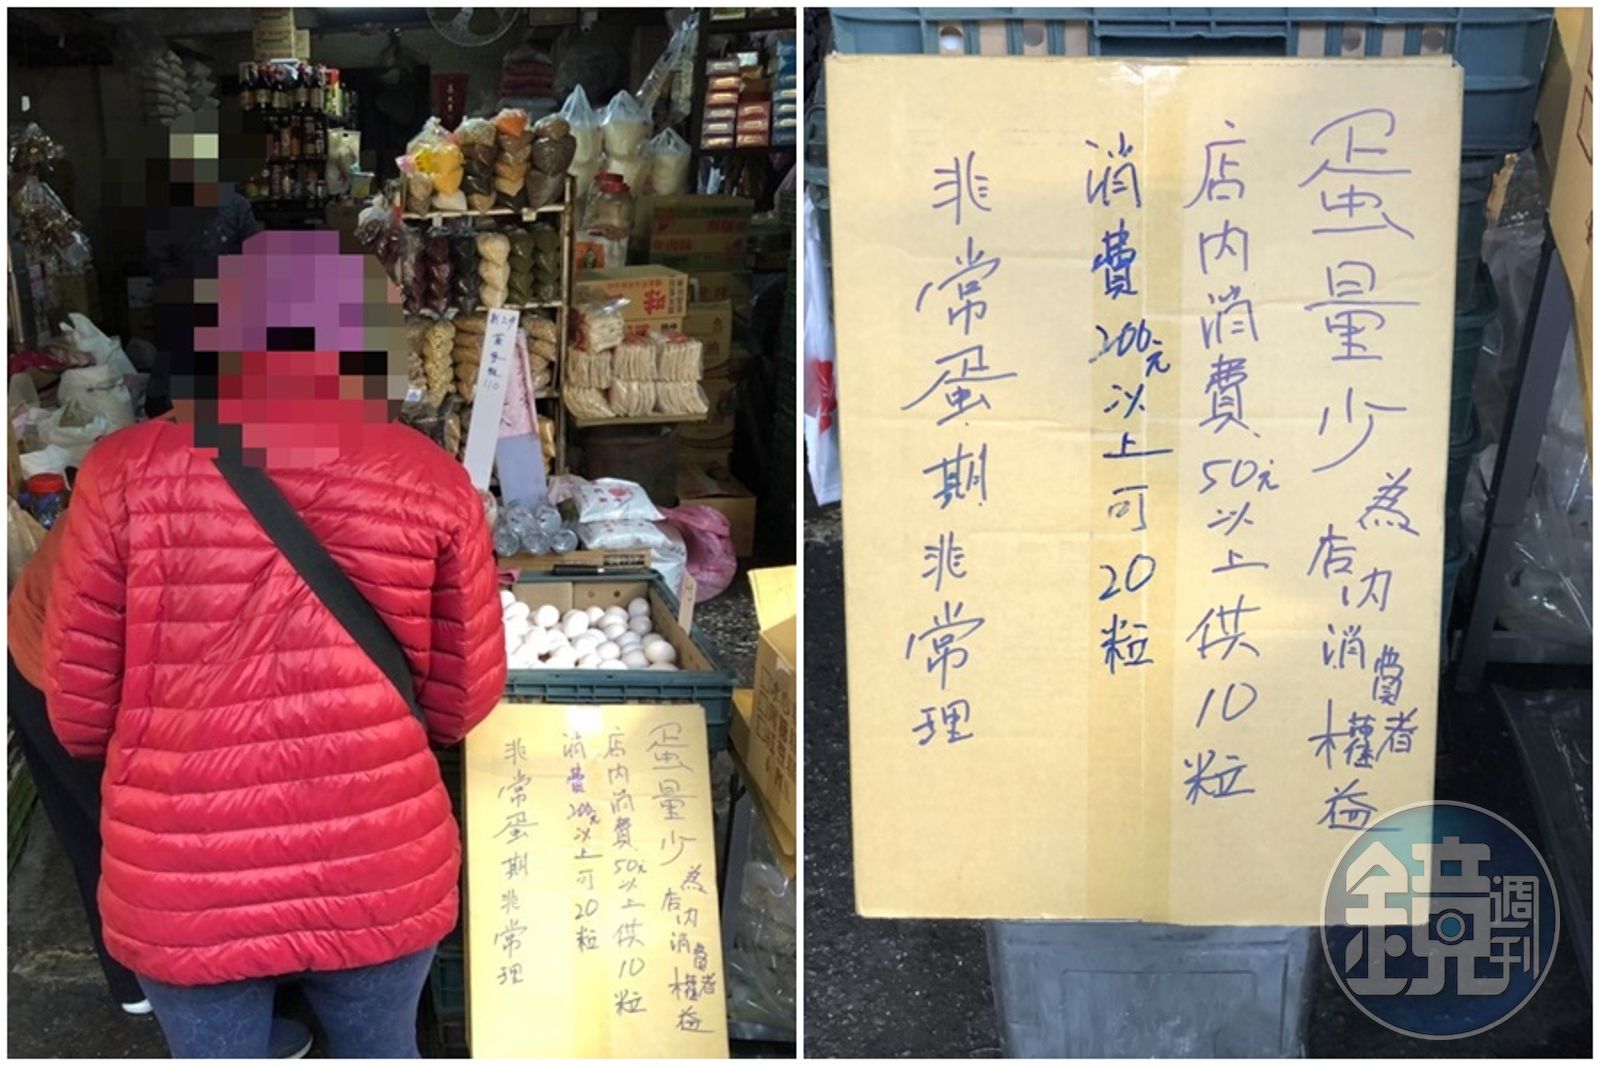 新上市
110
蛋量少為店內消費者權益
店內消費50元以上供10粒
消費200元以上可20粒
非常蛋期非常理
蛋量少為店內消費者權益
店內消費50元以上供10粒
消費200元以上可20粒
非常蛋期非常理
鏡週刊